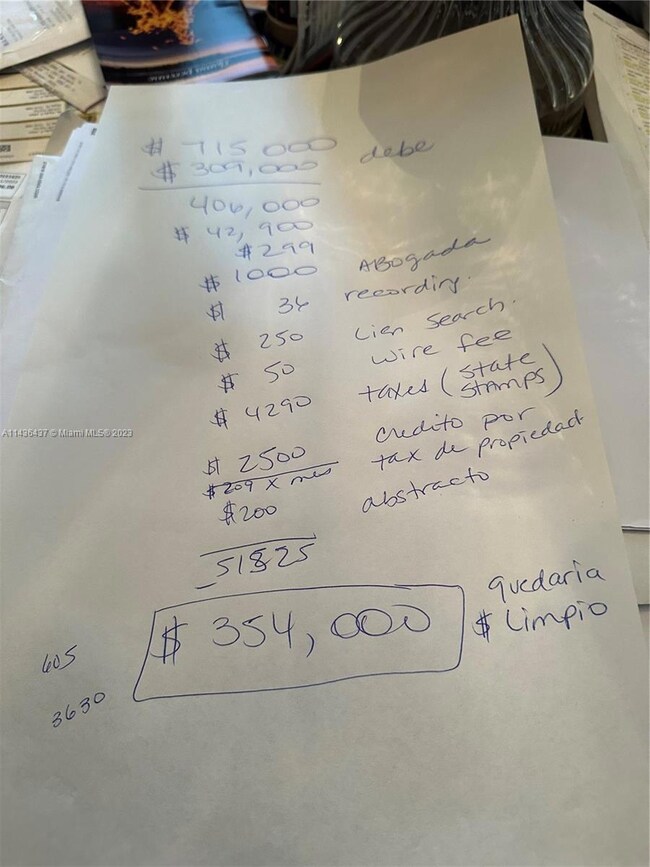 $ 715 000
$ 309,000 debe
406,000
$ 42,900
$ 299
$ 1000 Abogada
$ 36 recording.
$ 250 Lien Search.
$ 50 wire fee
$ 4290 taxes (state stamps)
$ 2500 credito por tax de propiedad
$ 209 x mes
$200 abstracto
51525
$ 354,000 quedaria $ Limpio
605
3630
A11436437 © Miami MLS® 2023